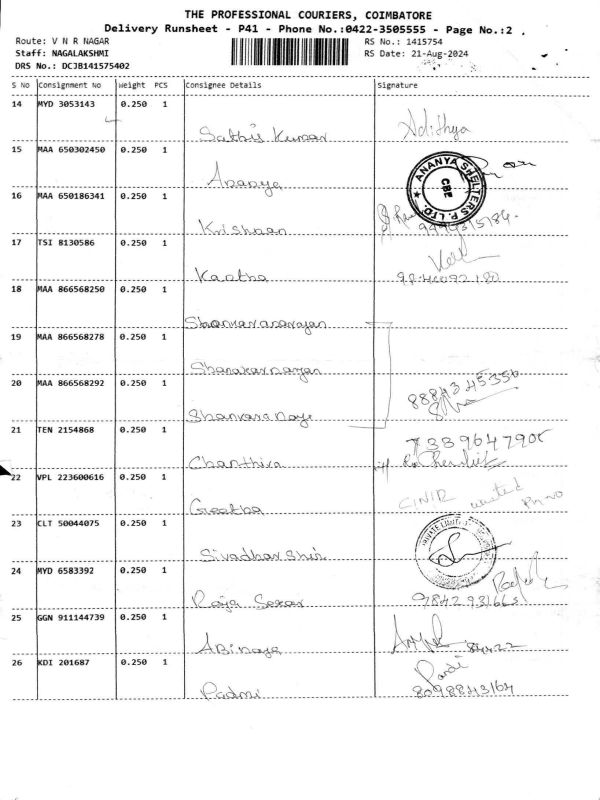 THE PROFESSIONAL COURIERS, COIMBATORE
Delivery Runsheet - P41 - Phone No.:0422-3505555 - Page No.:2
Route: V N R NAGAR RS No.: 1415754
Staff: NAGALAKSHMI RS Date: 21-Aug-2024
DRS No.: DCJB141575402
S No Consignment No Weight PCS Consignee Details Signature
14 MYD 3053143 0.250 1
Sathis Kumar Adithya
15 MAA 650302450 0.250 1
Ananya
ANANYA SHELTERS P. LTD. CBE
16 MAA 650186341 0.250 1
Krishnan
17 TSI 8130586 0.250 1
Kavitha
18 MAA 866568250 0.250 1
19 MAA 866568278 0.250 1
20 MAA 866568292 0.250 1
88843 45356
21 TEN 2154868 0.250 1
Chanthira
22 VPL 223600616 0.250 1
Geetha
23 CLT 50044075 0.250 1
PRIVATE LIMITED
24 MYD 6583392 0.250 1
Raja Sekar 9842931665
25 GGN 911144739 0.250 1
Abinaya
26 KDI 201687 0.250 1
Pandi
Padmi 8098843164